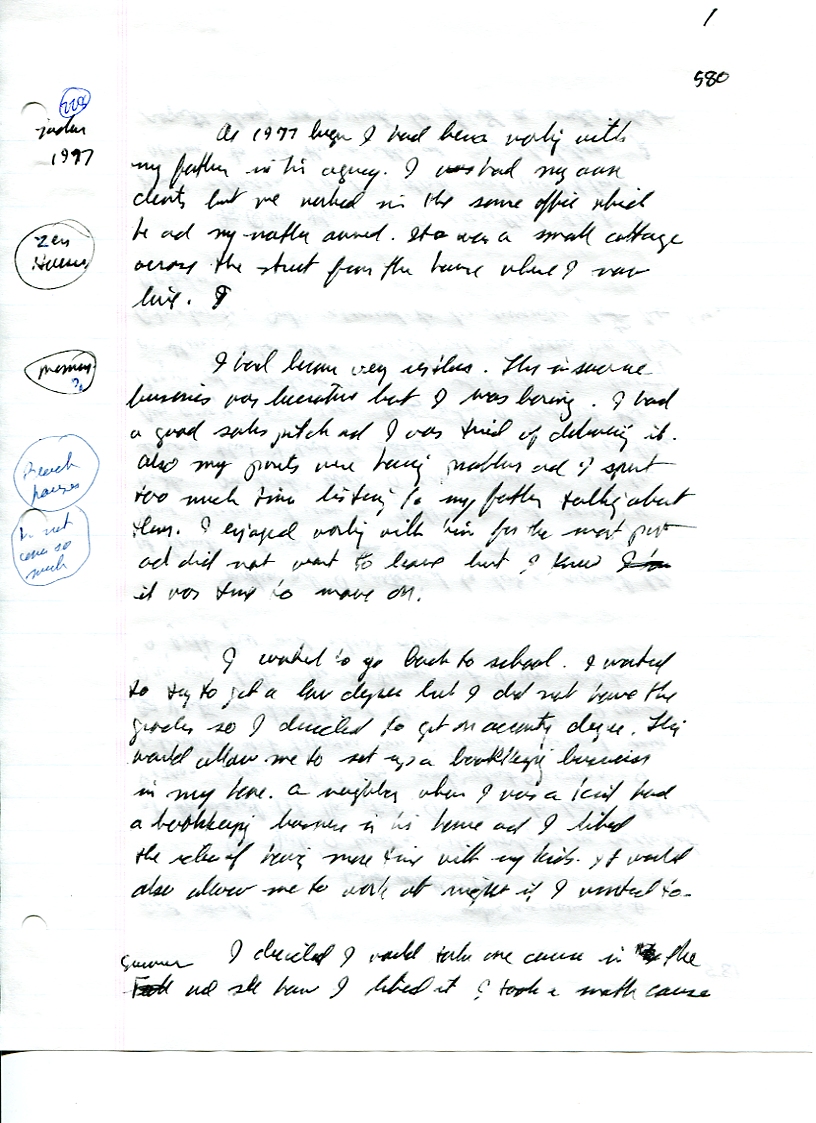 1
580
1997
Zen
As 1997 began I had been working with
my father in his agency. I had my own
clients but we worked in the same office which
he and my mother owned. It was a small cottage
across the street from the house where I now
live.
I had become very restless. The insurance
business was lucrative but I was boring. I had
a good sales pitch and I was tired of delivering it.
Also my parents were having problems and I spent
too much time listening to my father talking about
them. I enjoyed working with him for the most part
and did not want to leave but I knew
it was time to move on.
I wanted to go back to school. I wanted
to try to get a law degree but I did not have the
grades so I decided to get an accounting degree. This
would allow me to set up a bookkeeping business
in my home. A neighbor when I was a kid had
a bookkeeping business in his home and I liked
the idea of having more time with my kids. It would
also allow me to work at night if I wanted to.
Summer I decided I would take one course in the
and see how I liked it I took a math course